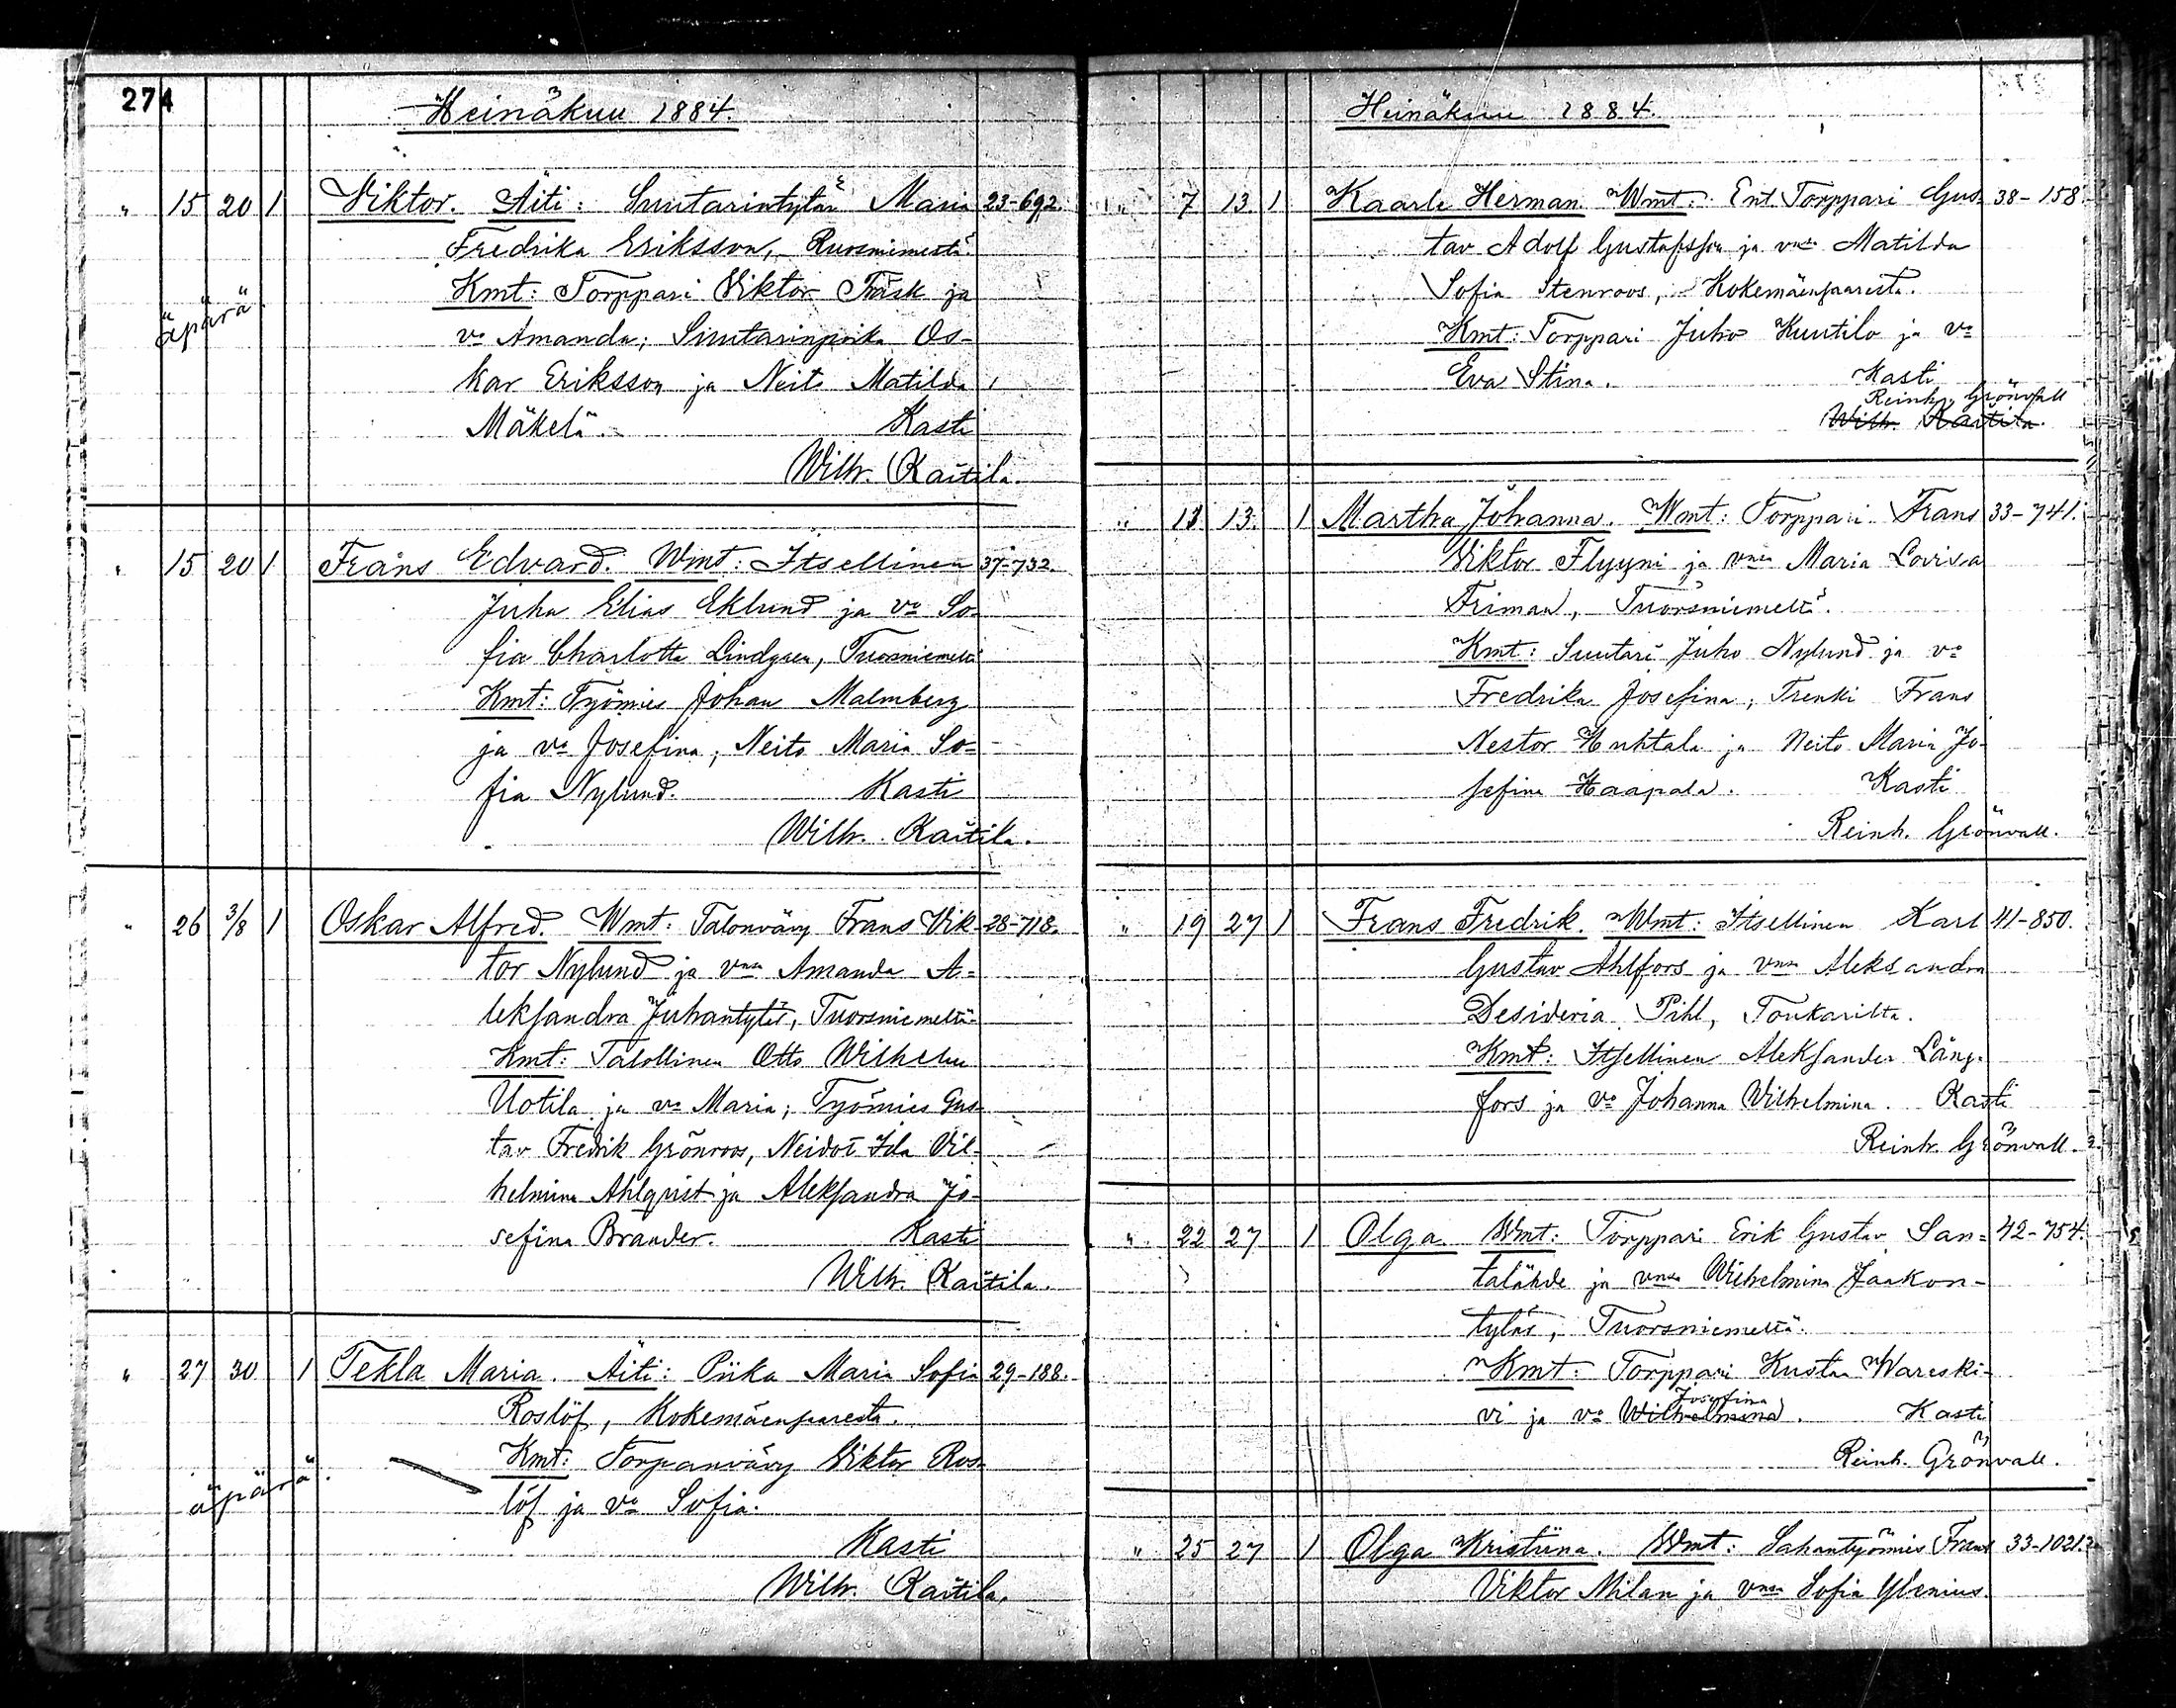 274
Heinäkuu 1884.
" 15 20 1 Viktor. Äiti: Suutarintytär Maria 23-692.
Fredrika Eriksson, Ruosniemestä.
Kmt: Torppari Viktor Trask ja
äpärä
vo Amanda; Suutarinpoika Os-
kar Eriksson ja Neito Matilda
Mäkelä. Kasti
Wilh. Kaitila.
" 15 20 1 Frans Edvard. Wmt: Itsellinen 37-732.
Juha Elias Eklund ja vo So-
fia Charlotta Lindgren, Tuorsniemeltä
Kmt: Työmies Johan Malmberg
ja vo Josefina; Neito Maria So-
fia Nylund. Kasti
Wilh. Kaitila.
" 26 3/8 1 Oskar Alfred. Wmt: Talonvävy Frans Vik- 28-718.
tor Nylund ja vnsa Amanda A-
leksandra Juhantytär, Tuorsniemeltä
Kmt: Talollinen Otto Wilhelm
Uotila ja vo Maria; Työmies Gus-
tav Fredrik Grönroos, Neidot Ida Vil-
helmina Ahlqvist ja Aleksandra Jo-
sefina Brander. Kasti
Wilh. Kaitila.
" 27 30 1 Tekla Maria. Äiti: Piika Maria Sofia 29-188.
Roslöf, Kokemäensaaresta.
Kmt: Torpanvävy Viktor Ros-
äpärä.
löf ja vo Sofia.
Kasti
Wilh. Kaitila.
Heinäkuu 1884.
" 7 13 1 Kaarle Herman. Wmt: Ent. Torppari Gus- 38-158.
tav Adolf Gustafsson ja vnsa Matilda
Sofia Stenroos, Kokemäensaaresta.
Kmt: Torppari Juho Kuutilo ja vo
Eva Stina. Kasti
Reinh. Grönvall
Wilh. Kaitila.
" 11 13 1 Martha Johanna. Wmt: Torppari Frans 33-741.
Viktor Flyyni ja vnsa Maria Lovisa
Friman, Tuorsniemeltä.
Kmt: Suutari Juho Nylund ja vo
Fredrika Josefina; Trenki Frans
Nestor Huhtala ja Neito Maria Jo-
sefina Haapala. Kasti
Reinh. Grönvall.
" 19 27 1 Frans Fredrik. Wmt: Itsellinen Karl 41-850.
Gustav Ahlfors ja vnsa Aleksandra
Desideria Pihl, Toukarilta.
Kmt: Itsellinen Aleksander Läng-
fors ja vo Johanna Vilhelmina. Kasti
Reinh. Grönvall.
" 22 27 1 Olga. Wmt: Torppari Erik Gustav San- 42-754.
talähde ja vnsa Wilhelmina Jaakon-
tytär, Tuorsniemeltä.
Kmt: Torppari Kustaa Wareski-
Josefina
vi ja vo Wilhelmina. Kasti
Reinh. Grönvall.
" 25 27 1 Olga Kristiina. Wmt: Sahantyömies Frans 33-1021.
Viktor Milan ja vnsa Sofia Ylenius.